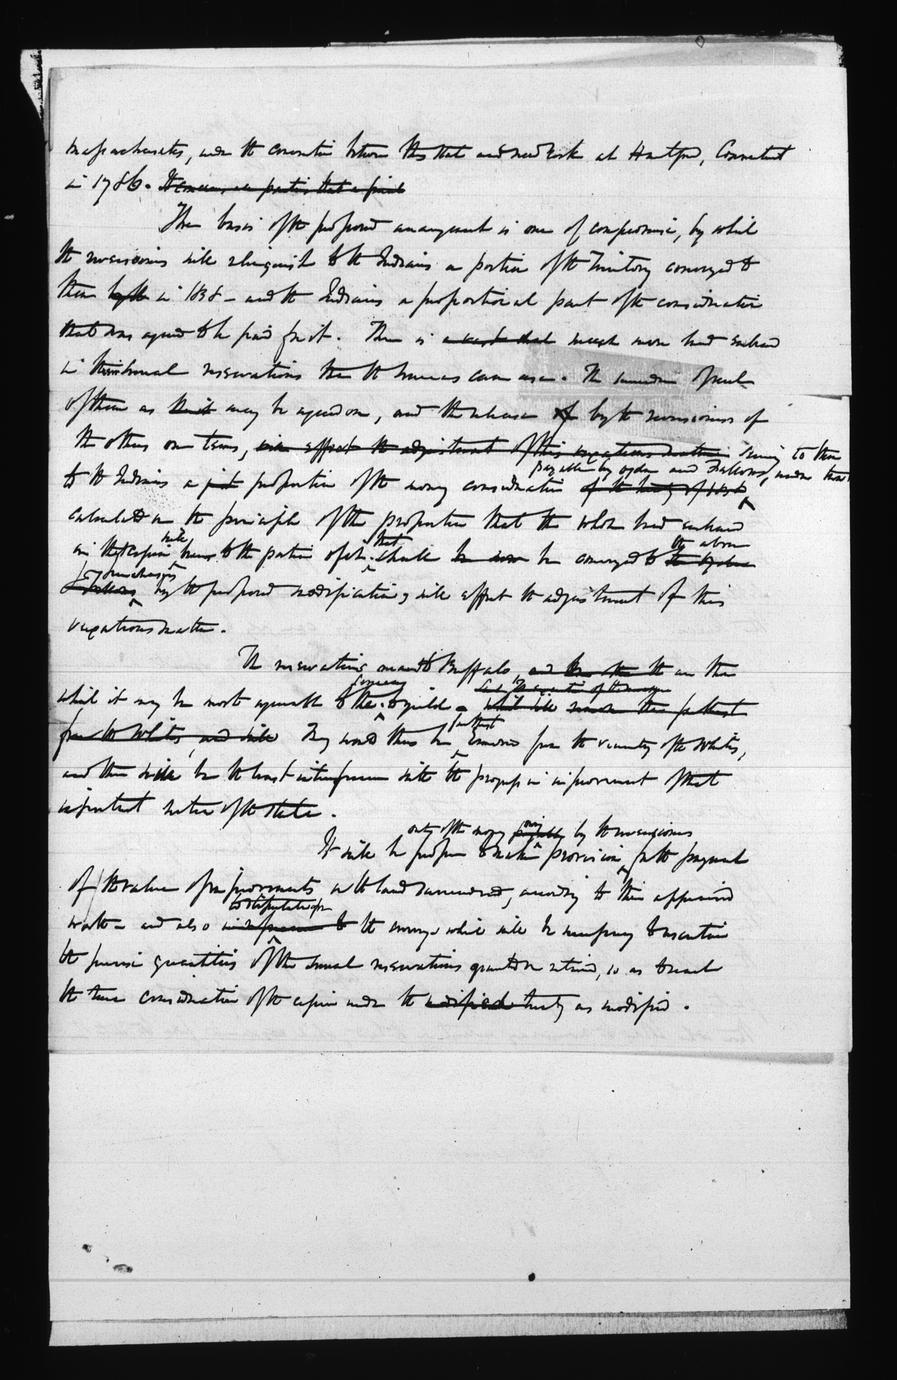 Massachusetts, under the convention between this State and New York at Hartford, Connecticut
in 1786. It
The basis of the proposed arrangement is one of compromise, by which
the reversioners will relinquish to the Indians a portion of the Territory conveyed to
them by the in 1838 - and the Indians a proportional part of the consideration
that was agreed to be paid for it. There is a vast deal much more land embraced
in the several reservations than the Senecas can use. The surrender of such
of them as may be agreed on, and the release of by the reversioners of
the others on terms, will effect the adjustment of this vexatious matter, to them
payable by Ogden and Fellows, under that
to the Indians a just proportion of the money consideration of the treaty of 1838
calculated on the principle of the proportion that the whole land embraced
in the cession will to the portion of it that shall be now be conveyed to the above
purchasers by the proposed modification, will effect the adjustment of this
vexatious matter.
The reservations nearest to Buffalo, and the are the
company
which it may be most agreeable to the to yield
from the Whites, and will They would thus be furthest removed from the vicinity of the Whites,
and there will be the least interference with the progress in improvement of that
important section of the State.
out of the money by the reversioners
It will be proper to make provision for the payment
of the value of improvements on the land surrendered, according to their appraised
worth - and also to the surveys which will be necessary to ascertain
the precise quantities of the several reservations granted or retained, so as to reach
the true consideration of the cession under the modified treaty as modified.